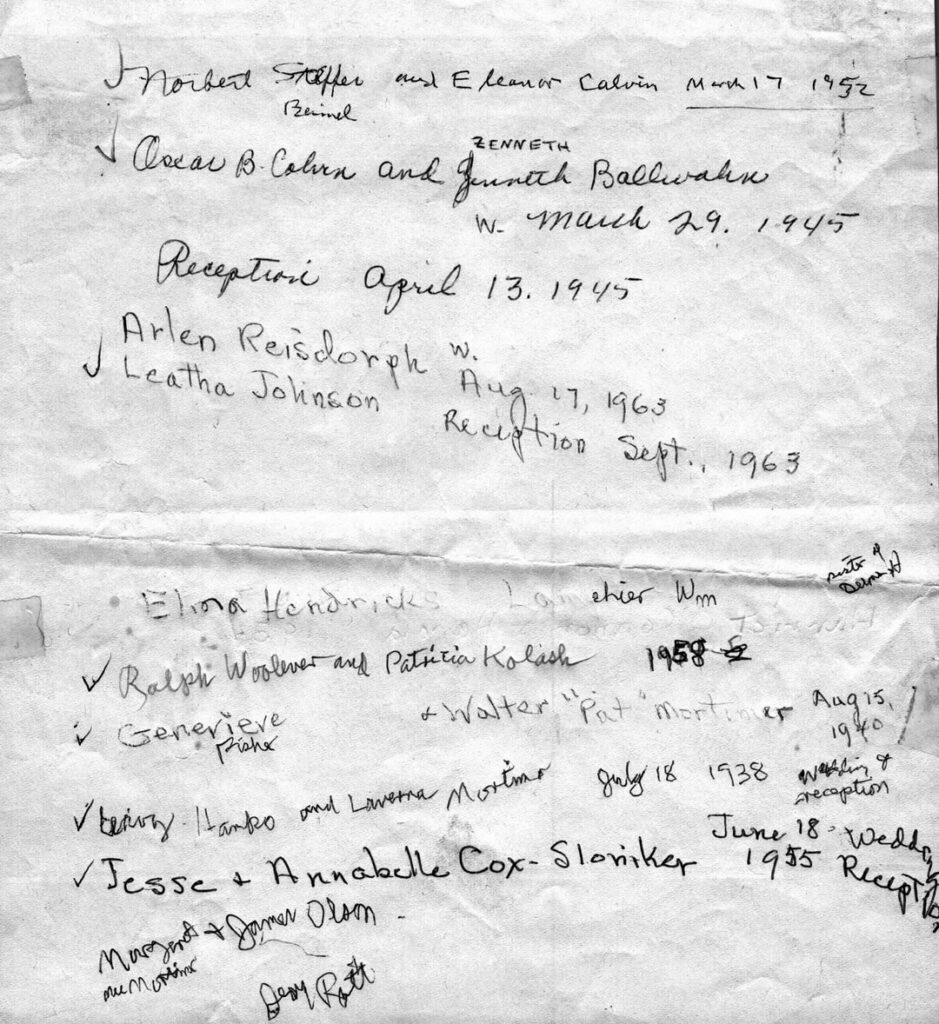 Norbert Steffer and Eleanor Calvin March 17 1952
Beimel
ZENNETH
Oscar B. Colvin and Zenneth Ballwahn
W. March 29. 1945
Reception April 13. 1945
Arlen Reisdorph w.
Leatha Johnson Aug 17, 1963
Reception Sept., 1963
sister of
Elma Hendricks Wm
Ralph Woolever and Patricia Kolash 1958
Genevieve & Walter "Pat" Mortimer Aug 15,
Fisher 1940
Hanko and Laverna Mortimer July 18 1938 Wedding &
reception
June 18 - Wedding
Jesse + Annabelle Cox-Sloniker 1955 Reception
Margaret + James Olson -
nee Mortimer